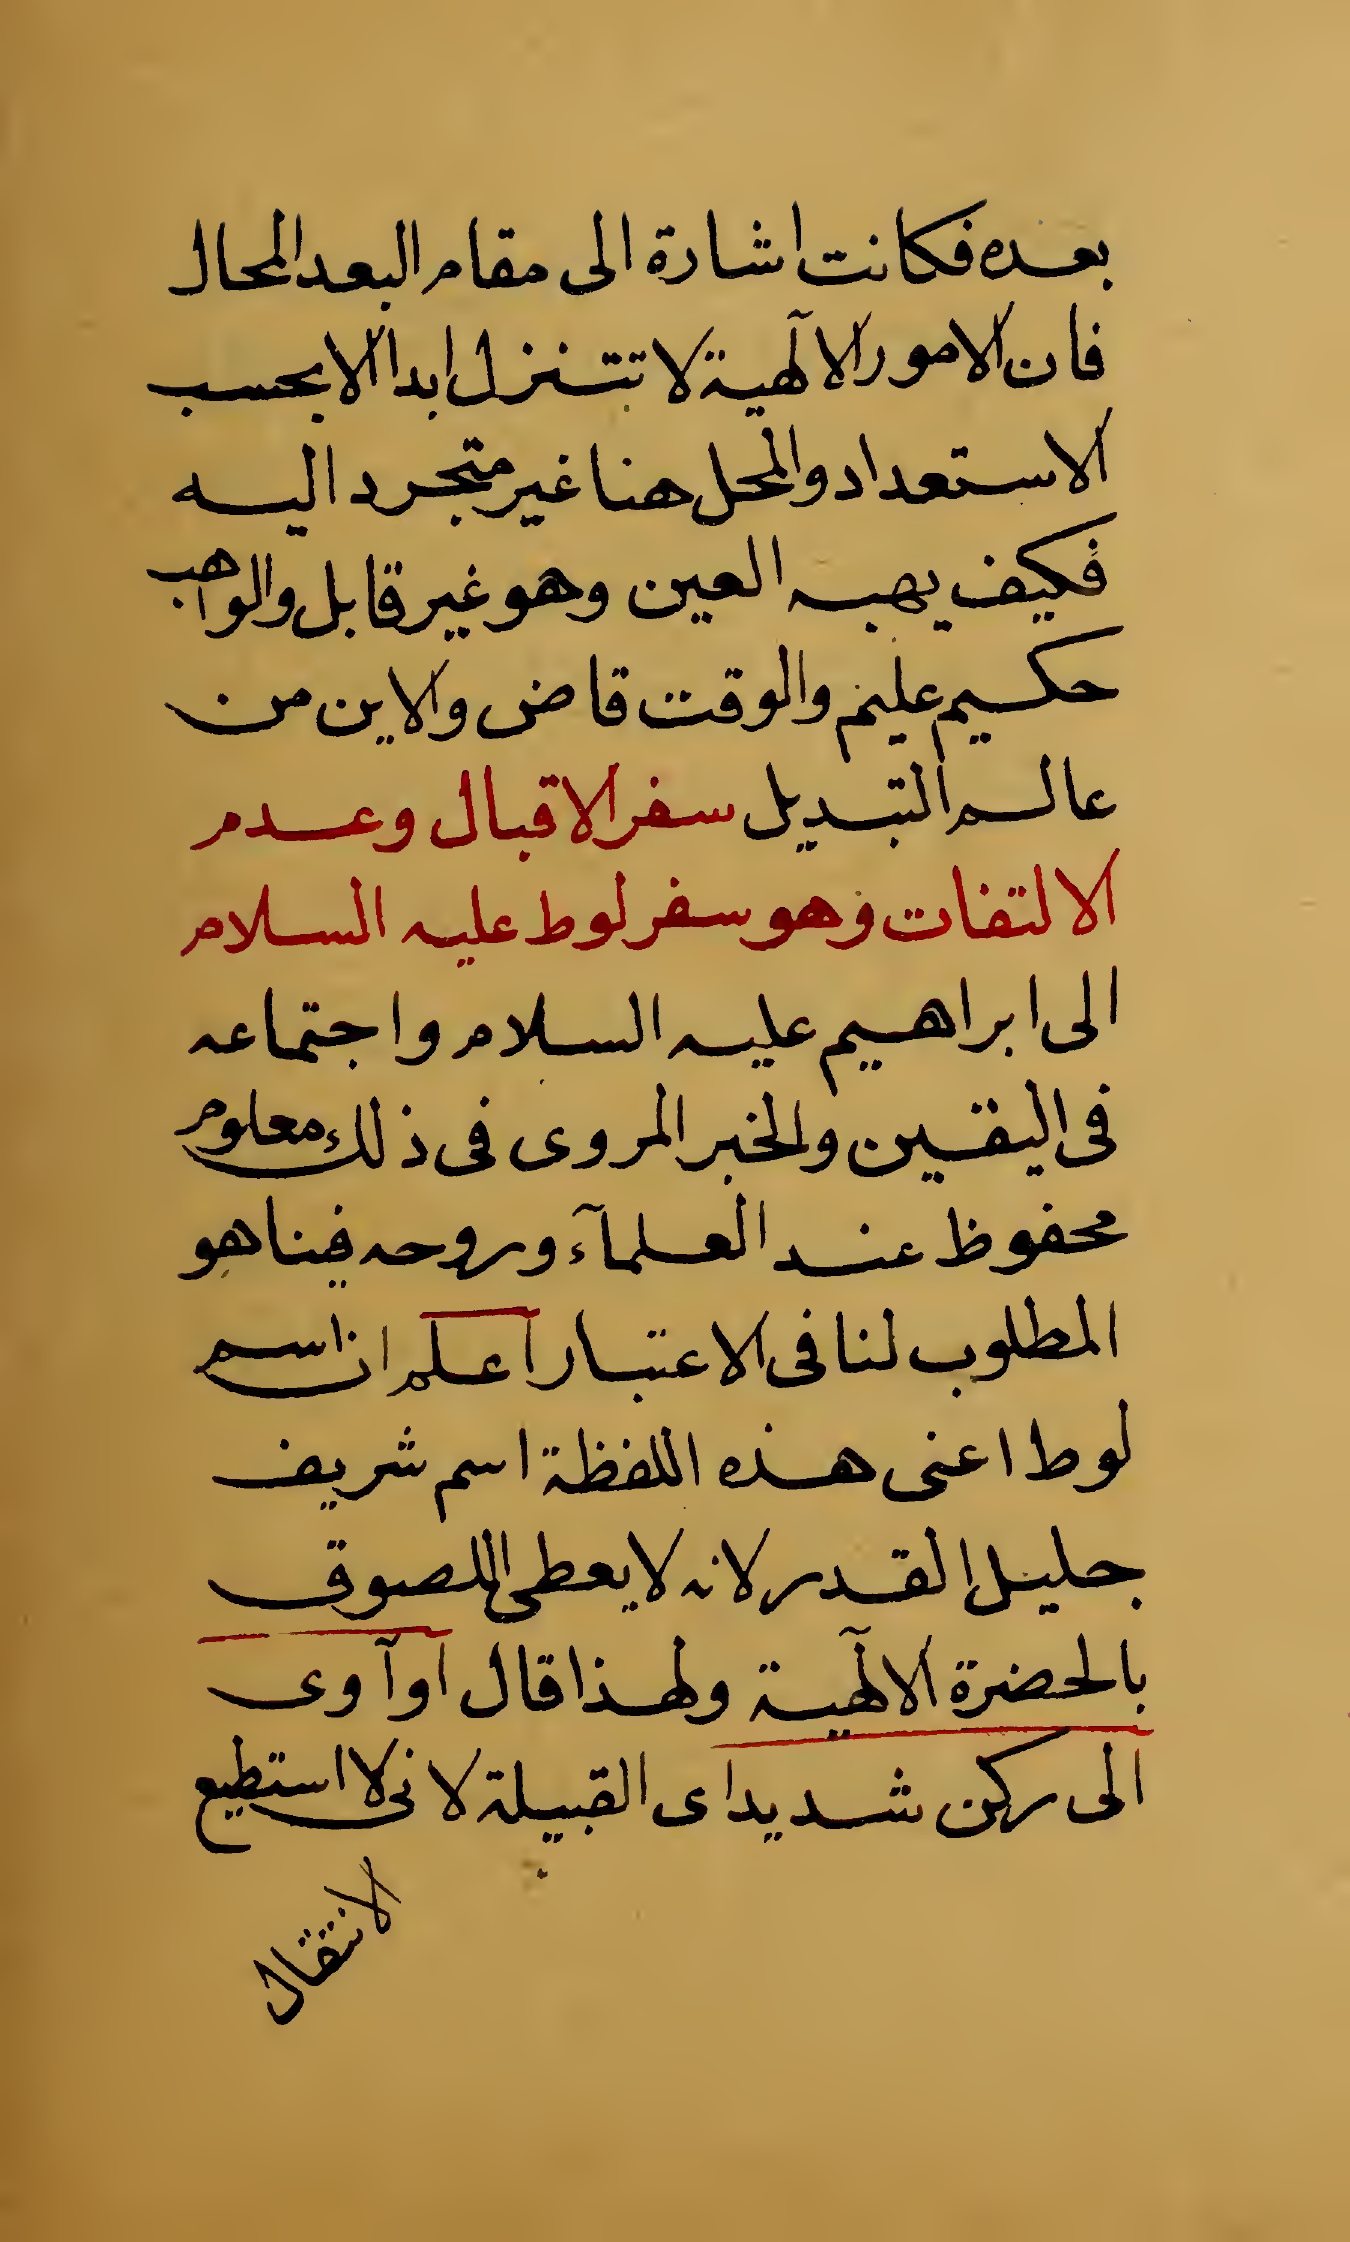 بعده فكانت اشارة الى مقام البعد المحال
فان الامور الالٓهية لا تتنزل ابدا الا بحسب
الاستعداد والمحل هنا غير متجرد اليه
فكيف يهبه العين وهو غير قابل والواهب
حكيم عليم والوقت قاض والاين من
عالم التبديل سفر الاقبال وعدم
الالتفات وهو سفر لوط عليه السلام
الى ابراهيم عليه السلام واجتماعه
فى اليقين والخبر المروى فى ذلك معلوم
محفوظ عند العلمآء وروحه فينا هو
المطلوب لنا فى الاعتبار اعلم ان اسم
لوط اعنى هذه اللفظة اسم شريف
جليل القدر لانه لا يعطى اللصوق
بالحضرة الالٓهية ولهذا قال او آوى
الى ركن شديد اى القبيلة لانى لا استطيع
الانتقال